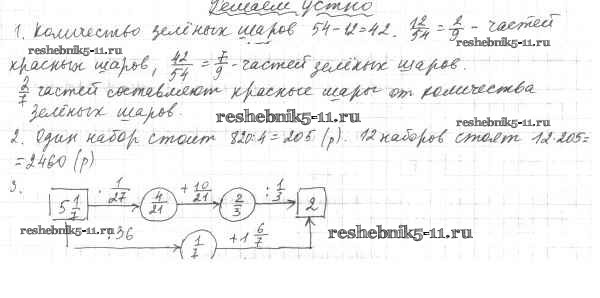 Решаем устно
1. Количество зелёных шаров 54-12=42. 12/54 = 2/9 - частей
reshebnik5-11.ru
красных шаров, 42/54 = 7/9 - частей зелёных шаров.
2/7 частей составляют красные шары от количества
зелёных шаров.
reshebnik5-11.ru
2. Один набор стоит 820:4=205 (р). 12 наборов стоят 12·205=
=2460 (р)
reshebnik5-11.ru
3.
5 1/7 · 1/27 4/21 + 10/21 2/3 : 1/3 2
reshebnik5-11.ru
:36 1/7 +1 6/7
reshebnik5-11.ru